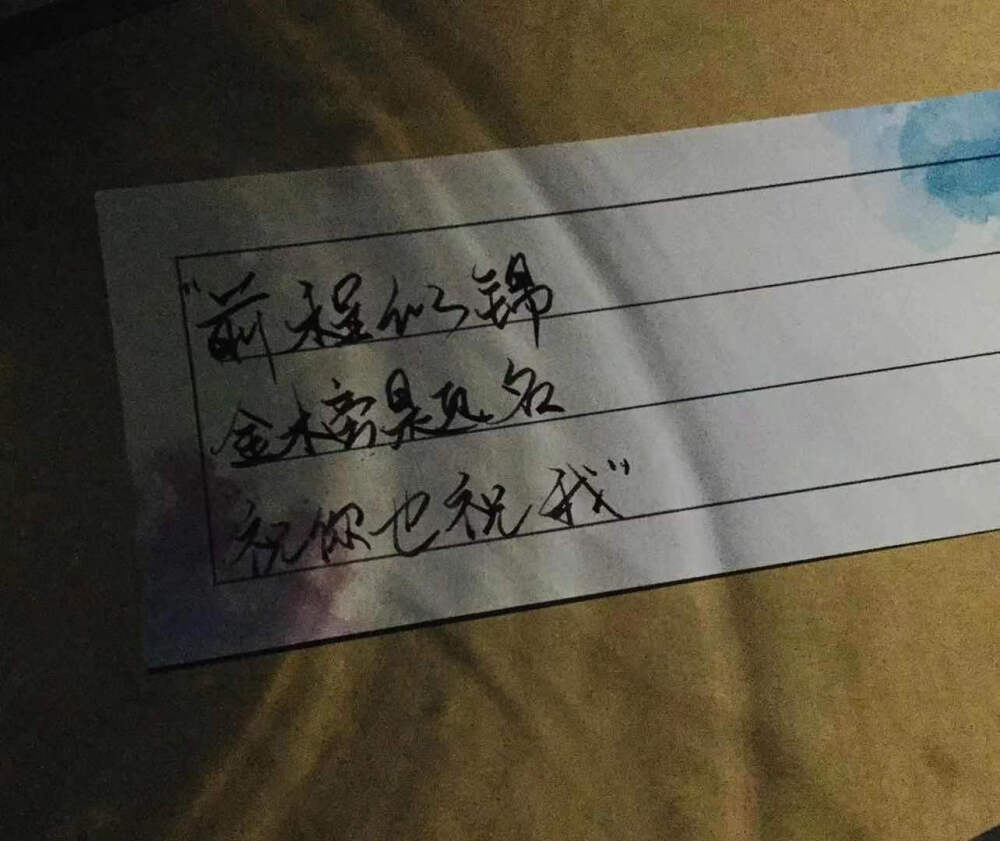 "前程似锦
金木蛮是题名
祝你也祝我"